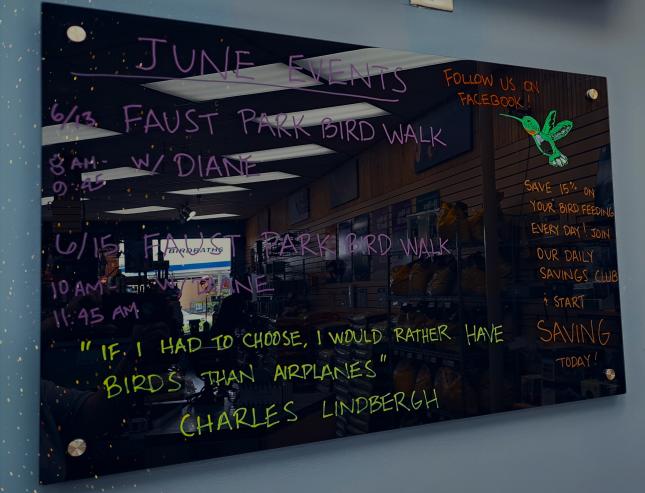 JUNE EVENTS
6/13 FAUST PARK BIRD WALK
8 AM - W/ DIANE
9:45
6/15 FAUST PARK BIRD WALK
10 AM - W/ DIANE
11:45 AM
"IF I HAD TO CHOOSE, I WOULD RATHER HAVE
BIRDS THAN AIRPLANES"
CHARLES LINDBERGH
FOLLOW US ON
FACEBOOK!
SAVE 15% ON
YOUR BIRD FEEDING
EVERY DAY! JOIN
OUR DAILY
SAVINGS CLUB
& START
SAVING
TODAY!
BIRDBATHS